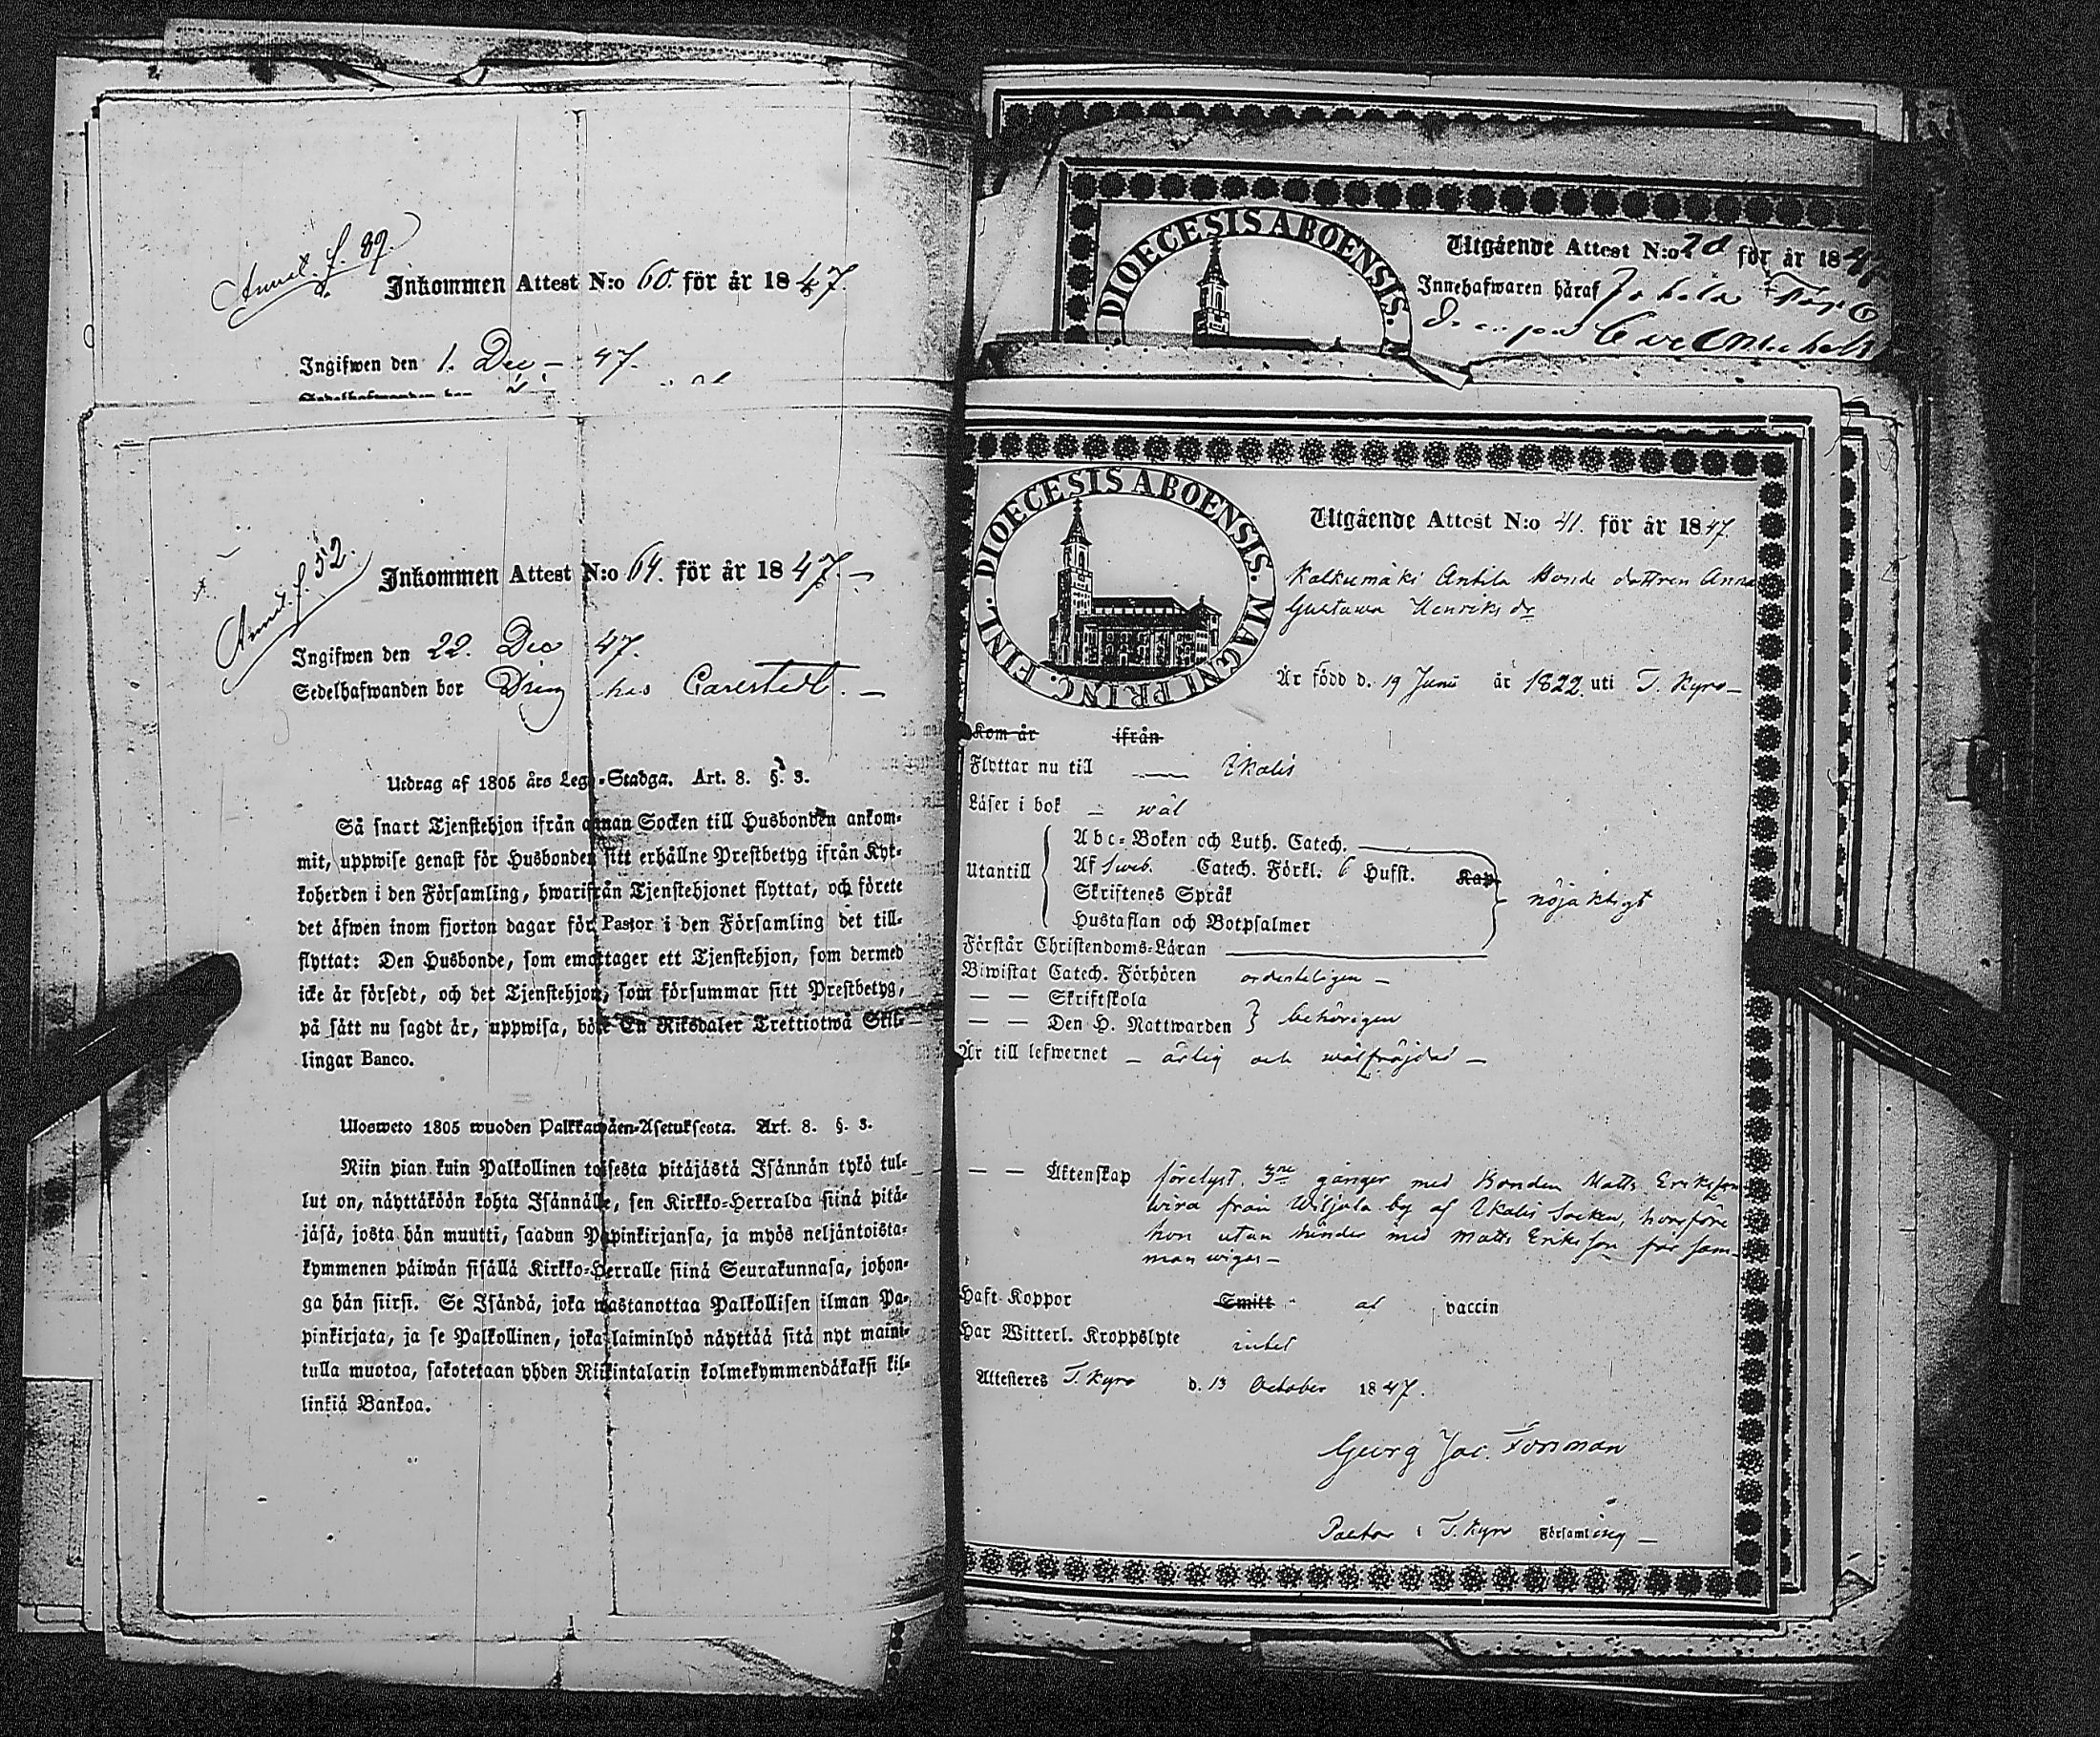 Annot. f. 89
Inkommen Attest N:o 60. för år 1847.
Ingifwen den 1. Dec. – 47.
Annot. f. 52.
Inkommen Attest N:o 64. för år 1847. –
Ingifwen den 22. Dec 47.
Sedelhafwanden bor Dreng hos Carlstedt. –
Utdrag af 1805 års Lego-Stadga. Art. 8. §. 3.
Så snart Tjenstehjon ifrån annan Socken till Husbonden ankom-
mit, uppwise genast för Husbonden sitt erhållne Prestbetyg ifrån Kyr-
koherden i den Församling, hwarifrån Tjenstehjonet flyttat, och förete
det äfwen inom fjorton dagar för Pastor i den Församling det till-
flyttat: Den Husbonde, som emottager ett Tjenstehjon, som dermed
icke är försedt, och det Tjenstehjon, som försummar sitt Prestbetyg,
på sätt nu sagdt är, uppwisa, böte En Riksdaler Trettiotwå Skil-
lingar Banco.
Ulosweto 1805 wuoden Palkkawäen-Asetuksesta. Art. 8. §. 3.
Niin pian kuin Palkollinen toisesta pitäjästä Isännän tykö tul-
lut on, näyttäköön kohta Isännälle, sen Kirkko-Herralda siinä pitä-
jäsä, josta hän muutti, saadun Papinkirjansa, ja myös neljäntoista-
kymmenen päiwän sisällä Kirkko-Herralle siinä Seurakunnasa, johon-
ga hän siirsi. Se Isändä, joka wastanottaa Palkollisen ilman Pa-
pinkirjata, ja se Palkollinen, joka laiminlyö näyttää sitä nyt maini-
tulla muotoa, sakotetaan yhden Riikintalarin kolmekymmendäkaksi kil-
linkiä Bankoa.
DIOECESIS ABOENSIS.
Utgående Attest N:o 28 för år 1847
Innehafwaren häraf
DIOECESIS ABOENSIS. MAGNI PRINC. FINL.
Utgående Attest N:o 41. för år 1847.
Kalkumäki Antila Bonde dottren Anna
Gustawa Henriks dr
Är född d. 19 Junii år 1822 uti T. Kyro –
Kom år ifrån
Flyttar nu till — Ikalis
Läser i bok – wäl
Utantill
Abc-Boken och Luth. Catech.
Af Sweb. Catech. Förkl. 6 Hufst. Kap.
Skriftenes Språk
Hustaflan och Botpsalmer
nöjaktigt
Förstår Christendoms-Läran
Biwistat Catech. Förhören ordenteligen –
— — Skriftskola
— — Den H. Nattwarden behörigen
Är till lefwernet – ärlig och wälfräjdad –
— — Äktenskap förelyst 3ne gånger med Bonden Matts Eriksson
Wira från Wiljala by af Ikalis Socken, hwarföre
hon utan hinder med Matts Eriksson får sam-
man wigas –
Haft Koppor Smitt af vaccin
Har Witterl. Kroppslyte intet
Attesteres T. Kyro d. 13 October 1847.
Georg Jac. Forsman
Pastor i T. Kyro Församling –